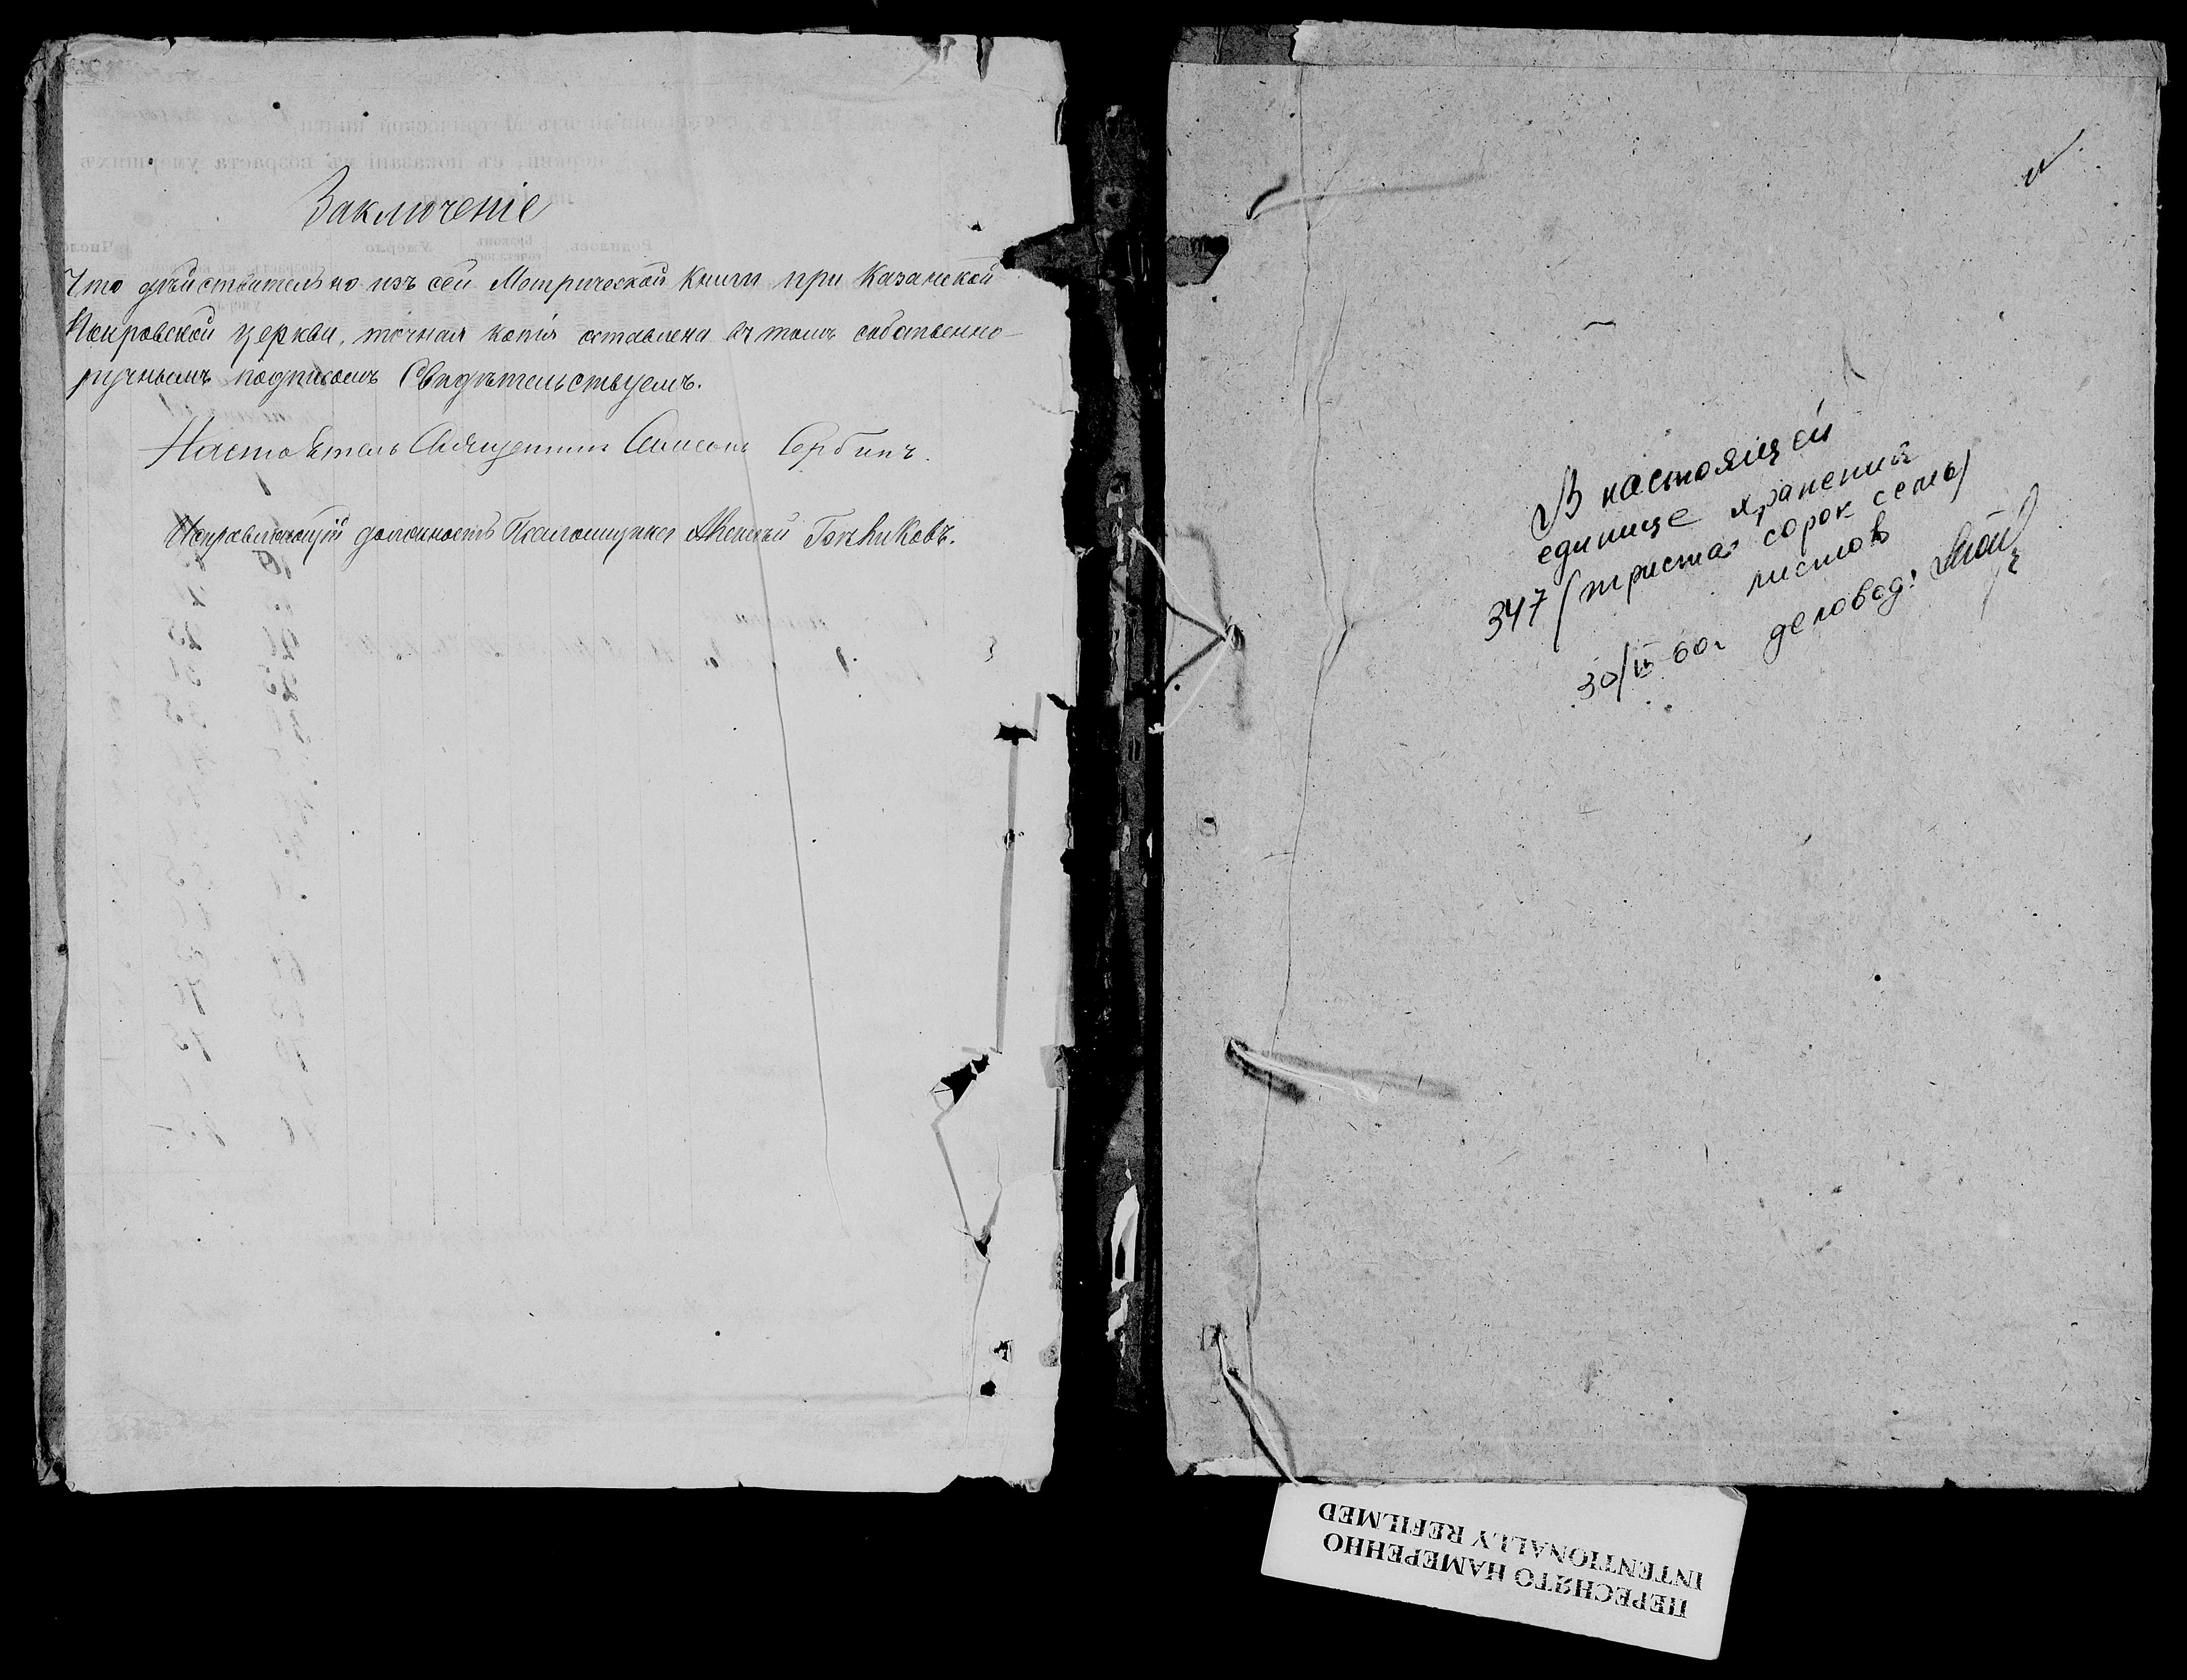 Заключеніе
Что дѣйствительно изъ сей Метрической книги при Казанской
Покровской церкви, точная копія оставлена въ томъ собственно-
ручнымъ подписомъ Свидѣтельствуемъ.
Настоятель Священникъ Симеонъ Сербинъ.
Исправляющій должность Псаломщика Алексѣй
В настоящей
единице хранения
347 (триста сорок семь)
листов
30/IV 60г деловод:
ПЕРЕСНЯТО НАМЕРЕННО
INTENTIONALLY REFILMED